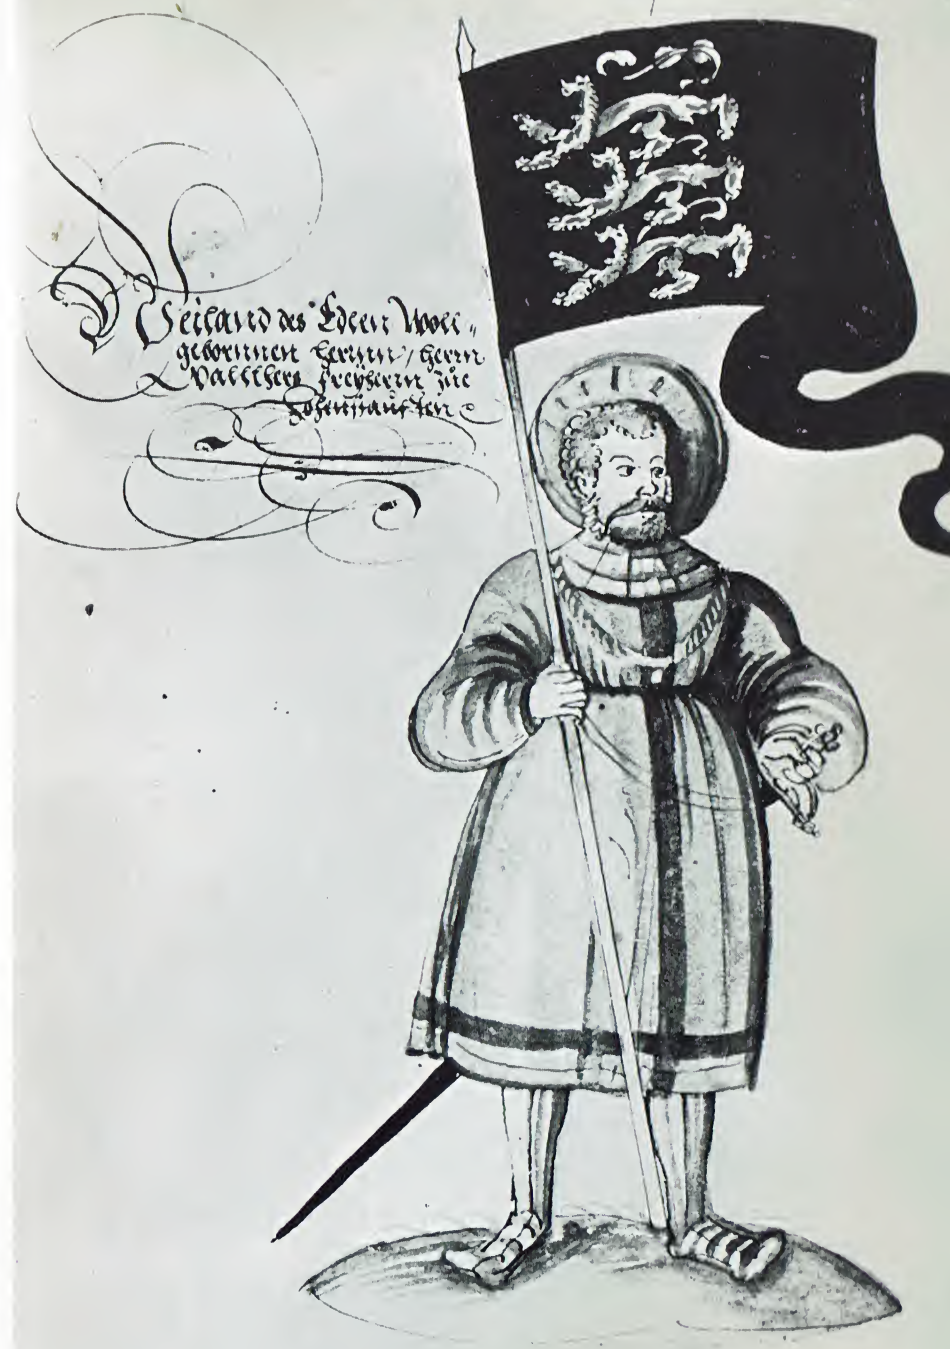 Weiland des Edlen Woll-
gebornnen Herrnn / Herrn
Wallthers Freyherrn zue
Hohenstauffen